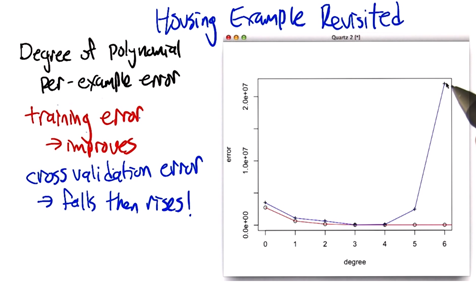 Housing Example Revisited
Degree of polynomial
per-example error
training error
→ improves
cross validation error
→ falls then rises!
Quartz 2 [*]
error
0.0e+00
1.0e+07
2.0e+07
0 1 2 3 4 5 6
degree